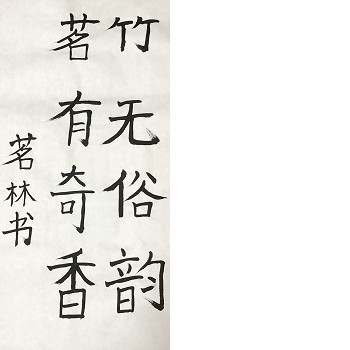 竹无俗韵
茗有奇香
茗林书